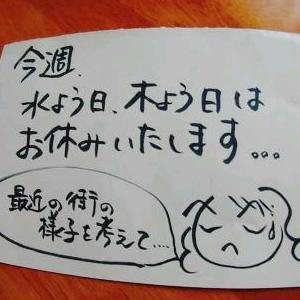 今週、
水よう日、木よう日は
お休みいたします...
最近の街の
様子を考えて....